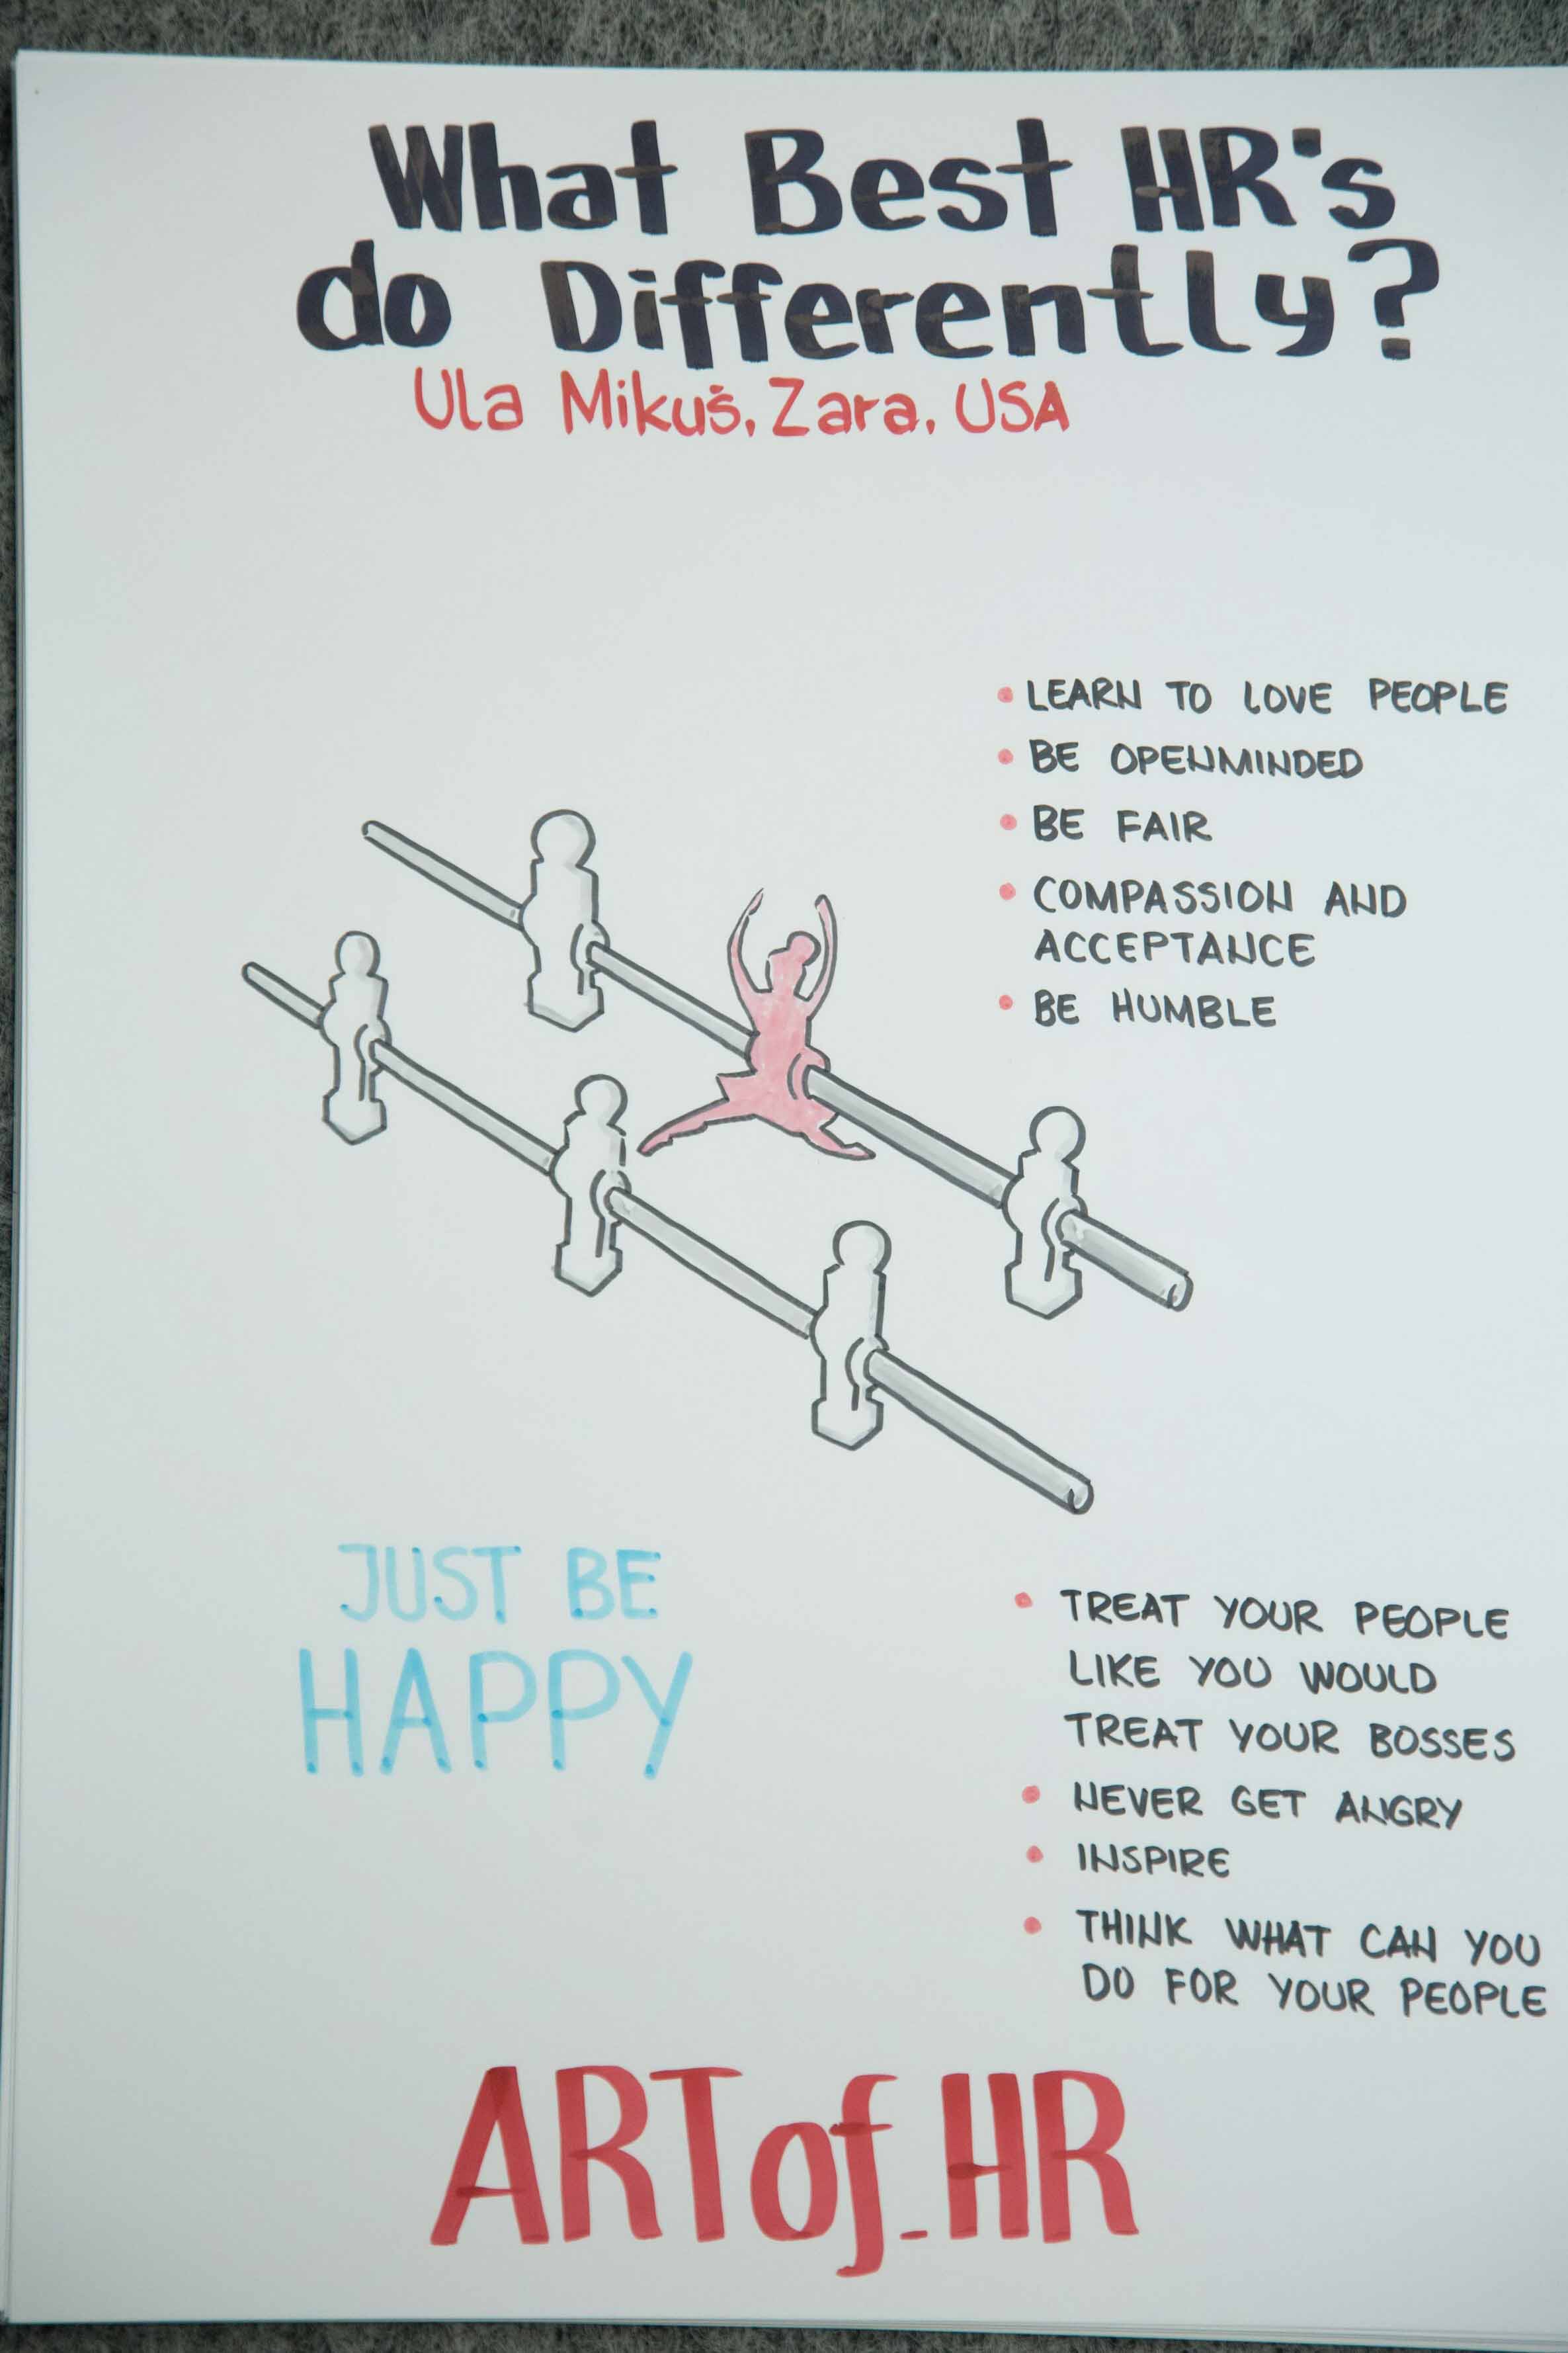 What Best HR's
do Differently?
Ula Mikuš, Zara, USA
• LEARN TO LOVE PEOPLE
• BE OPENMINDED
• BE FAIR
• COMPASSION AND
ACCEPTANCE
• BE HUMBLE
JUST BE
HAPPY
• TREAT YOUR PEOPLE
LIKE YOU WOULD
TREAT YOUR BOSSES
• NEVER GET ANGRY
• INSPIRE
• THINK WHAT CAN YOU
DO FOR YOUR PEOPLE
ARTof_HR